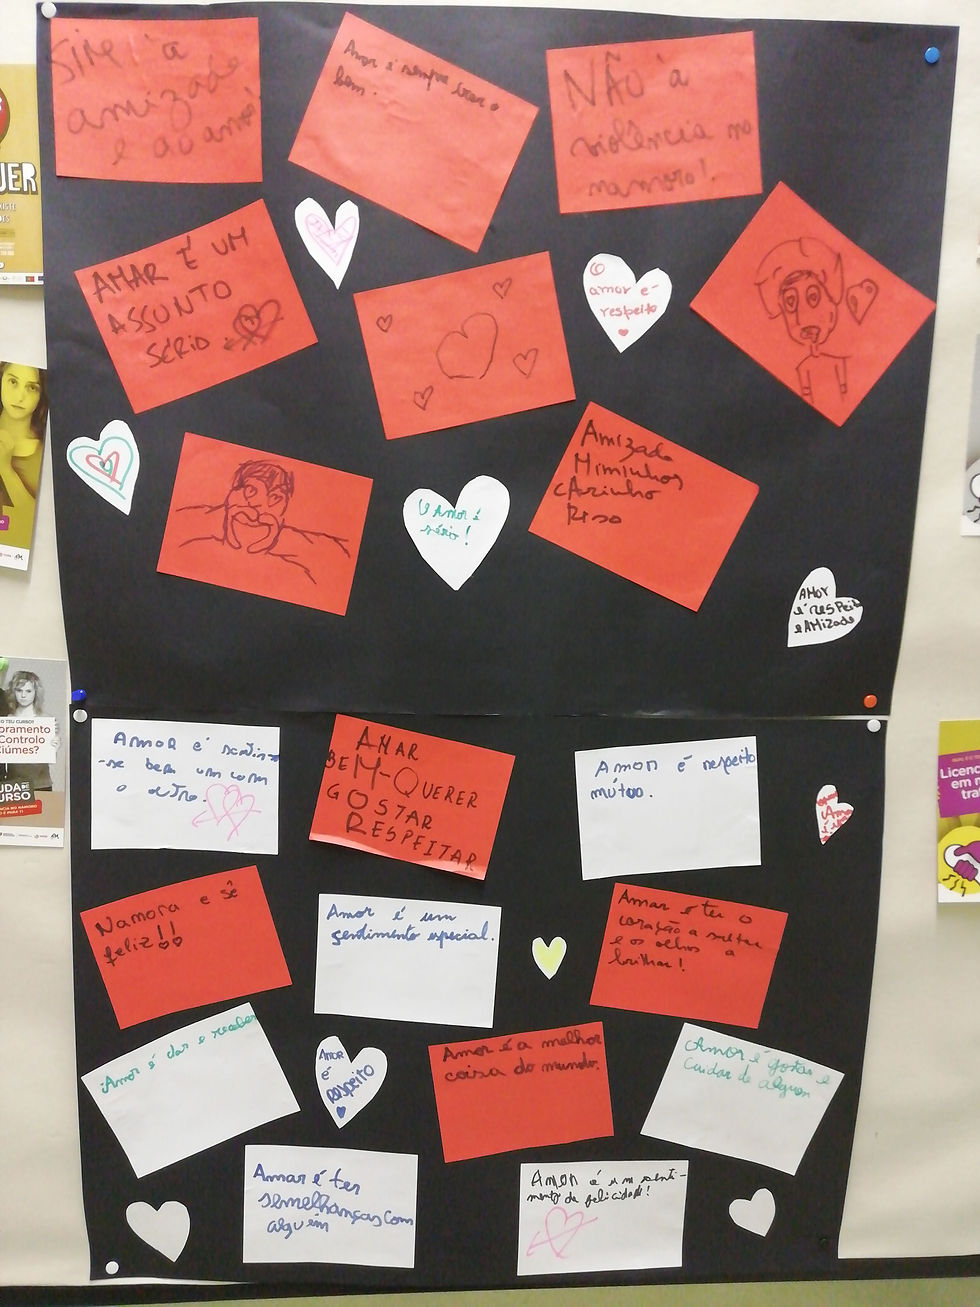 SIM! à
amizade
e ao amor!
Amor é sempre
bem.
NÃO à
violência no
namoro!
AMAR É UM
ASSUNTO
SÉRIO
O
amor é
respeito
Amizade
Miminhos
cArinho
Riso
O Amor é
sério!
AMOR
é resPeit
e AMizade
AMOR é sentir-
-se bem um com
o outro.
AMAR
BEM-QUERER
GOSTAR
RESPEITAR
AMOR é respeito
mútuo.
Namora e sê
feliz!!
Amor é um
sentimento especial.
Amar é ter o
coração a saltar
e os olhos a
brilhar!
Amor é dar e receber
AMOR
é
respeito
Amor é a melhor
coisa do mundo.
Amor é gostar e
cuidar de alguém
Amar é ter
semelhanças com
alguém
AMOR é um senti-
mento de felicidade!
UER
O TEU CURSO?
oramento
Controlo
Ciúmes?
UDA DE
URSO
Licenc
em n
trat